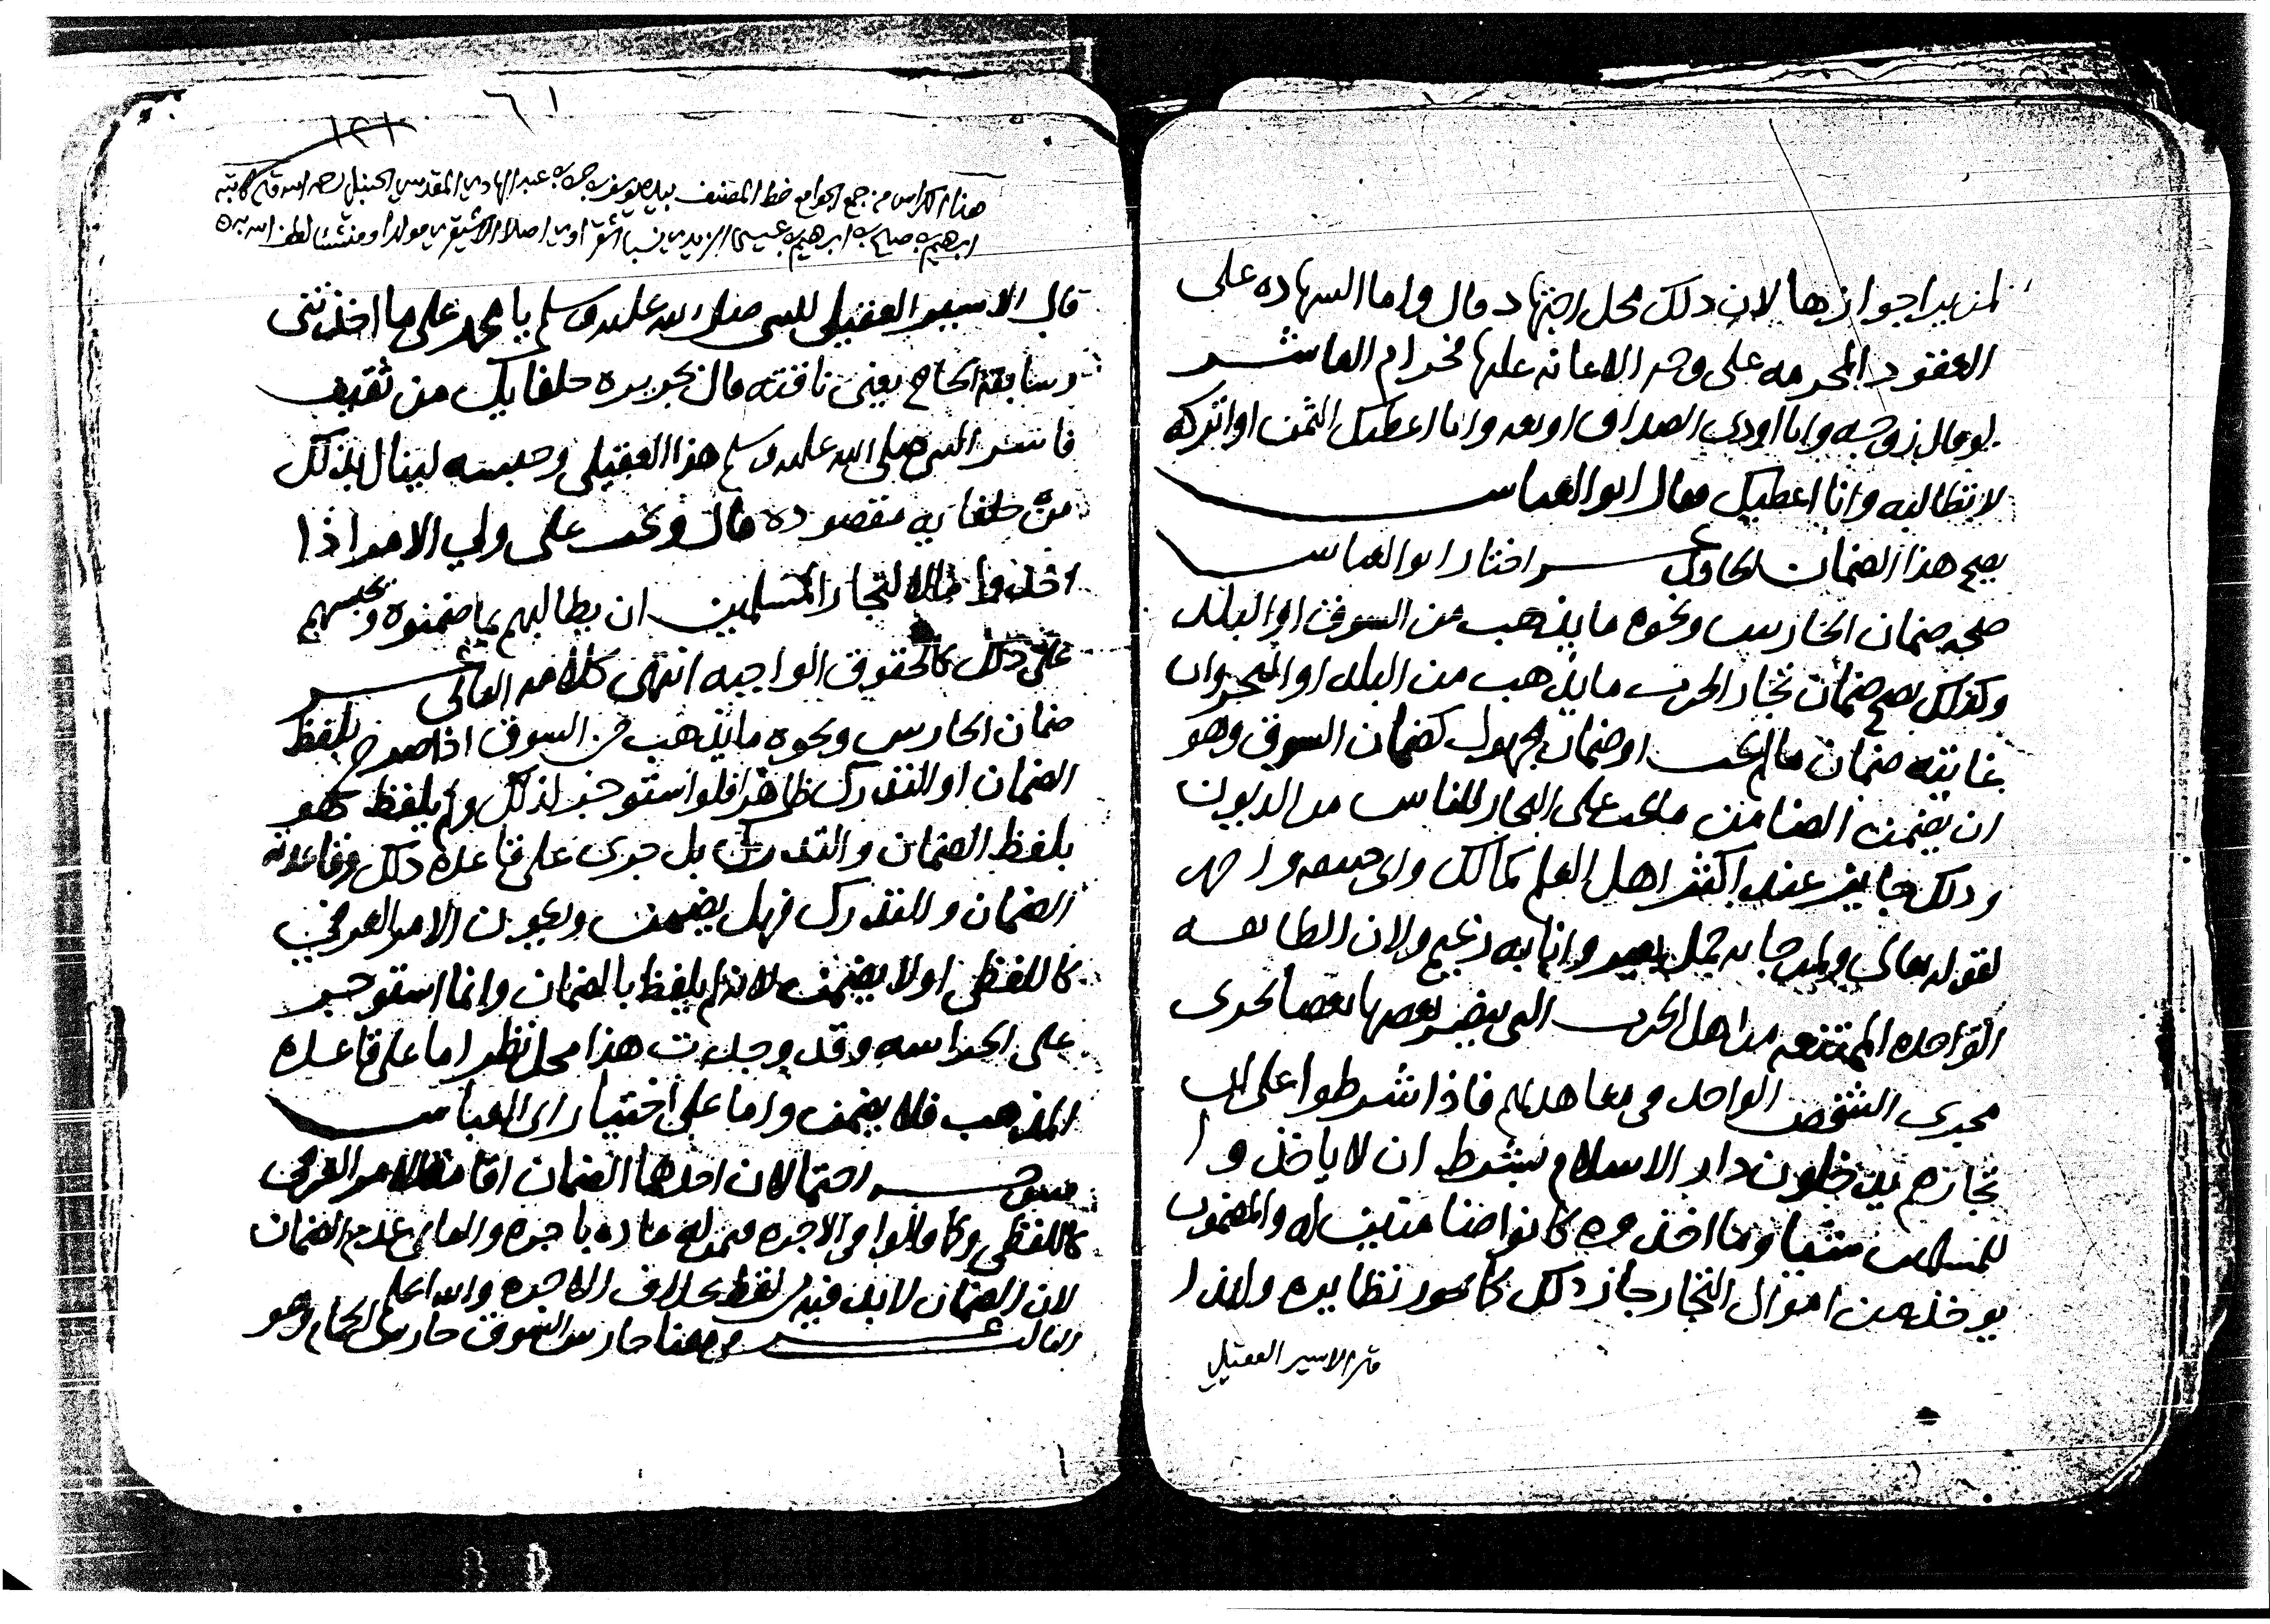 لمن يرا جوازها لان ذلك محل اجتهاد قال واما الشهاده على
العقود المحرمه على وجه الاعانه عليها فحرام العاشر
لو قال زوجه وانا اودي الصداق او بعه وانا اعطيك الثمن او اتركه
لا تطالبه وانا اعطيك فقال ابو العباس
يصح هذا الضمان الحادي عشر اختار ابو العباس
صحه ضمان الحارس ونحوه ما يذهب من السوق او البلد
وكذلك يصح ضمان تجار الحرب ما يذهب من البلد او البحر وان
غايته ضمان ما لم يجب او ضمان مجهول كضمان السوق وهو
ان يضمن الضامن ما يجب على التجار للناس من الديون
وذلك جايز عند اكثر اهل العلم كمالك وابي حنيفه واحمد
لقوله تعالى ولمن جا به حمل بعير وانا به زعيم ولان الطايفه
الواحده الممتنعه من اهل الحرب التي ينصر بعضها بعضا تجري
مجرى الشخص الواحد في معاهدتهم فاذا شرطوا على ان
تجارهم يدخلون دار الاسلام بشرط ان لا ياخذوا
للمسلمين شيئا وما اخذوه كانوا ضامنين له والمضمون
يوخذ من اموال التجار جاز ذلك كما تجوز نظايره ولهذا
قال الاسير العقيلي
٦١
١٢١
هذا الكراس من جمع الجوامع خط المصنف بيده يوسف بن حسن بن عبد الهادي المقدسي الحنبلي رحمه الله قاله كاتبه
ابرهيم بن صالح بن ابرهيم بن عيسى الزيدي نسبا الشقراوي اصلا الاشيقري مولدا ومنشئا لطف الله به
قال الاسير العقيلي للنبي صلى الله عليه وسلم يا محمد على ما اخذتني
وسابقة الحاج يعني ناقته قال بجريره حلفايك من ثقيف
فاسر النبي صلى الله عليه وسلم هذا العقيلي وحبسه لينال بذلك
من حلفايه مقصوده قال ويجب على ولي الامر اذا
اخذوا مالا لتجار المسلمين ان يطالبهم بما ضمنوه ويحبسهم
على ذلك كالحقوق الواجبه انتهى كلامه الثاني عشر
ضمان الحارس ونحوه ما يذهب من السوق اذا صرح بلفظ
الضمان او التدرك ظاهر فلو استوجر لذلك ولم يلفظ هو
بلفظ الضمان والتدرك بل جرى على قاعدة ذلك وقاعدته
الضمان والتدرك فهل يضمن ويكون الامر العرفي
كاللفظي او لا يضمن لانه لم يلفظ بالضمان وانما استوجر
على الحراسه وقد وجدت هذا محل نظر اما على قاعدة
المذهب فلا يضمن واما على اختيار ابي العباس
احتمالان احدهما الضمان اقامة للامر العرفي
كاللفظي وكما قالوا في الاجره فيمن له عاده باجره والثاني عدم الضمان
لان الضمان لا بد فيه من لفظ بخلاف الاجره والله اعلم
الثالث عشر في معنا حارس السوق حارس الحمام وهو